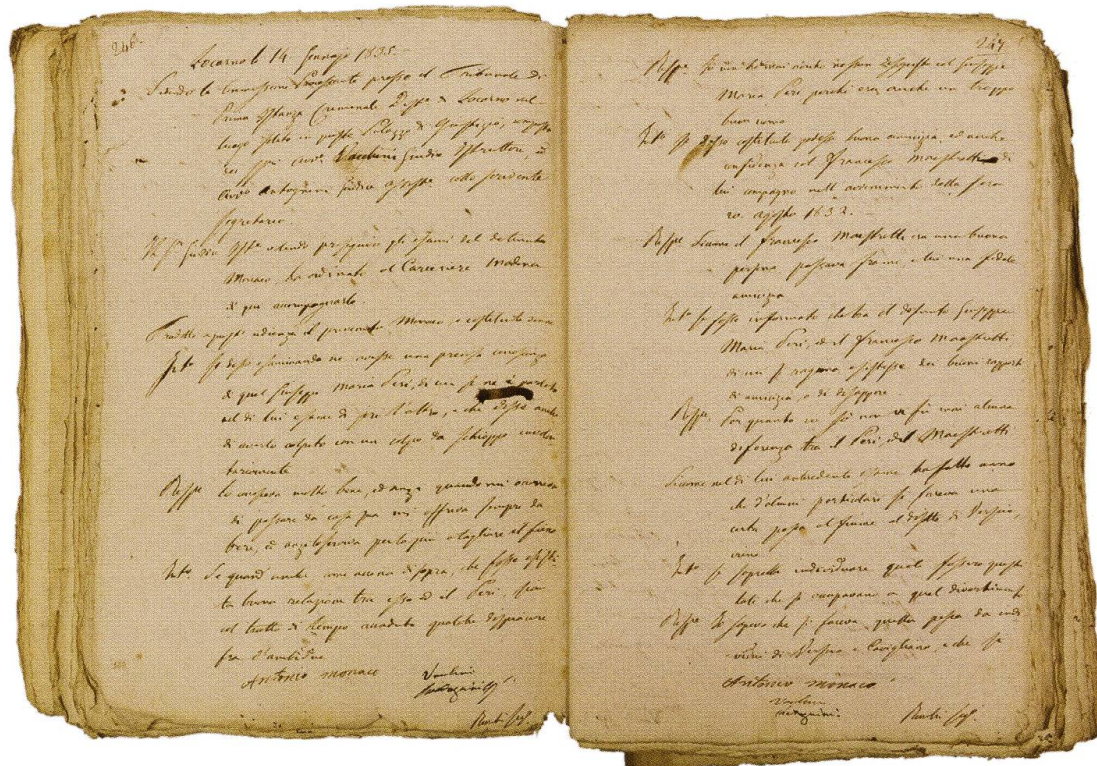 246.
Locarno li 14 Gennajo 1835.
Sedendo la Commissione Processante presso il Tribunale di
Prima Istanza Criminale Dist.e di Locarno nel
luogo solito in questo Palazzo di Giustizia, composta
dei Sig.ri Avv. Vacchini Giudice Istruttore, ed
Avvo Antognini Giudice col sottoscritto
Segretario.
Il S.r Giudice Istr.e volendo proseguire gli esami del detenuto
Monaco, ha ordinato al Carceriere Madonna
di qui accompagnarlo.
Tradotto quindi udienza il Monaco, e costituito
Int.o Se desso esaminando ne avesse una precisa conoscenza
di quel Giuseppe Maria Peri, di cui si ne è parlato
nel di lui esame di jeri l'altro, e che disse anche
di averlo colpito con un colpo da Schioppo involon
tariamente
Risp.e Lo conosceva molto bene, ed anzi quando mi occorreva
di passare da casa sua mi offriva sempre da
bere, ed a tagliare il fieno
Int.o Se quand'anche come accenna di sopra, che fosse esisti
ta buona relazione tra esso ed il Peri, sia
col tratto di tempo accaduto qualche dispiacere
fra d'ambidue
Antonio Monaco
Vacchini
Antognini
Rusca Seg.
247
Risp.e Io non ebbi mai anche nessun disgusto col Giuseppe
Maria Peri, perchè era anche un troppo
buon uomo
Int.o Se desso costituito avesse buona amicizia, ed anche
confidenza col Francesco Maestretti di
lui compagno nell' avvenimento della sera
20. agosto 1832.
Risp.e Siccome il Francesco Maestretti era una buona
persona passava fra me, e lui una fedele
amicizia
Int.o Se fosse informato che tra il defunto Giuseppe
Maria Peri, ed il Francesco Maestretti,
di cui si ragiona esistesse dei buoni rapporti
di amicizia, o di dissapore.
Risp.e Per quanto io sò non vi fu mai alcuna
differenza tra il Peri ed il Maestretti
Siccome nel di lui antecedente esame ha fatto cenno
che d'alcuni particolari si faceva una
certa pesca al fiume al disotto di Verscio,
Int.o Se saprebbe individuare quali fossero questi
tali che si occupavano a quel divertimento
Risp.e Io sapeva che si faceva quella pesca da indi
vidui di Verscio e Cavigliano, e che se
Antonio Monaco
Vacchini
Antognini.
Rusca Seg.